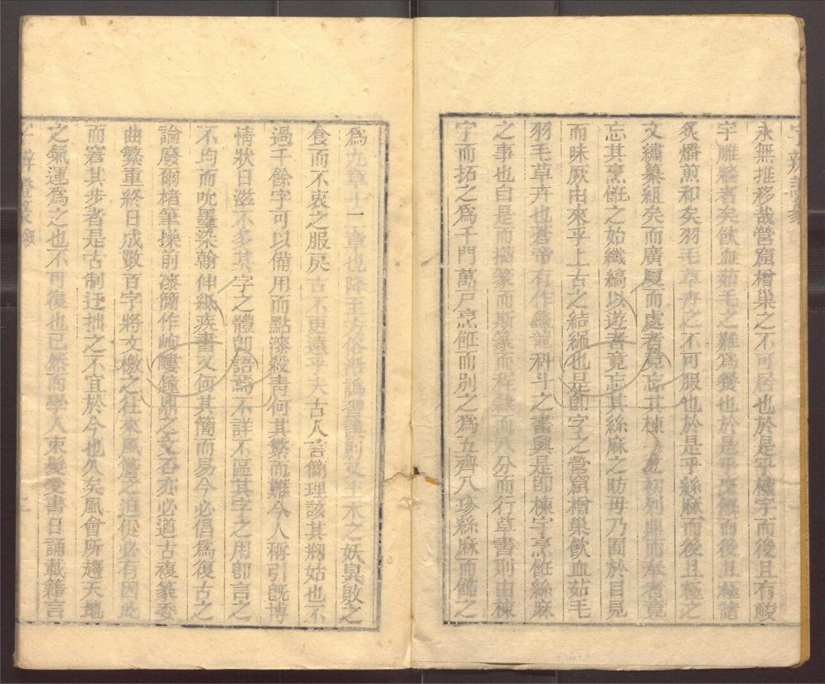 永無推移哉營窟橧巢之不可居也於是乎棟宇而後且有峻
宇雕牆者矣飲血茹毛之難為養也於是乎烹飪而後且極諸
炙燔煎和矣羽毛草卉之不可服也於是乎絲麻而後且極之
文繡纂組矣而廣廈而處者竟忘其棟宇之初列鼎而奉者竟
忘其烹飪之始纖縞以遊者竟忘其絲麻之昉毋乃面於目見
而昧厥由來乎上古之結繩也是即字之營窟橧巢飲血茹毛
羽毛草卉也蒼帝有作龜龍科斗之書興是即棟宇烹飪絲麻
之事也自是而籀篆而斯篆而程隸而八分而行草書則由棟
宇而拓之為千門萬戶烹飪而別之為五齊八珍絲麻而飾之
為九章十二章也降至方俗沿譌
食而不衷之服矣古不更遠乎夫古人言簡理該其
過千餘字可以備用而點漆殺青何其繁而難今人稱引既博
情狀日滋不多其字之體即語焉不詳不區其字之用即言之
不均而吮墨染翰伸紙疾書又何其簡而易今必倡為復古之
論廢爾楮筆操前漆簡作岣嶁鐘鼎之文否亦必遒古複篆委
曲繁重終日成數百字將文檄之往來
而窘其步者是古制迂拙之不宜於今也久矣風會所趨天地
之氣運為之也不可復也已然而學人束髮受書日誦載籍言